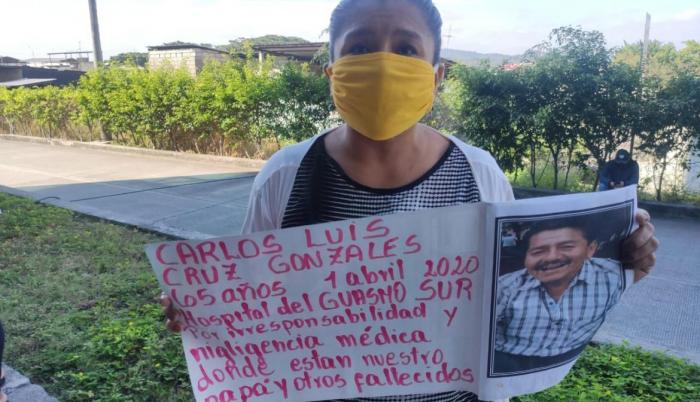 CARLOS LUIS
CRUZ GONZALES
65 años 1 abril 2020
Hospital del GUASMO SUR
Por irresponsabilidad y
nigligencia médica
donde estan nuestro
papá y otros fallecidos